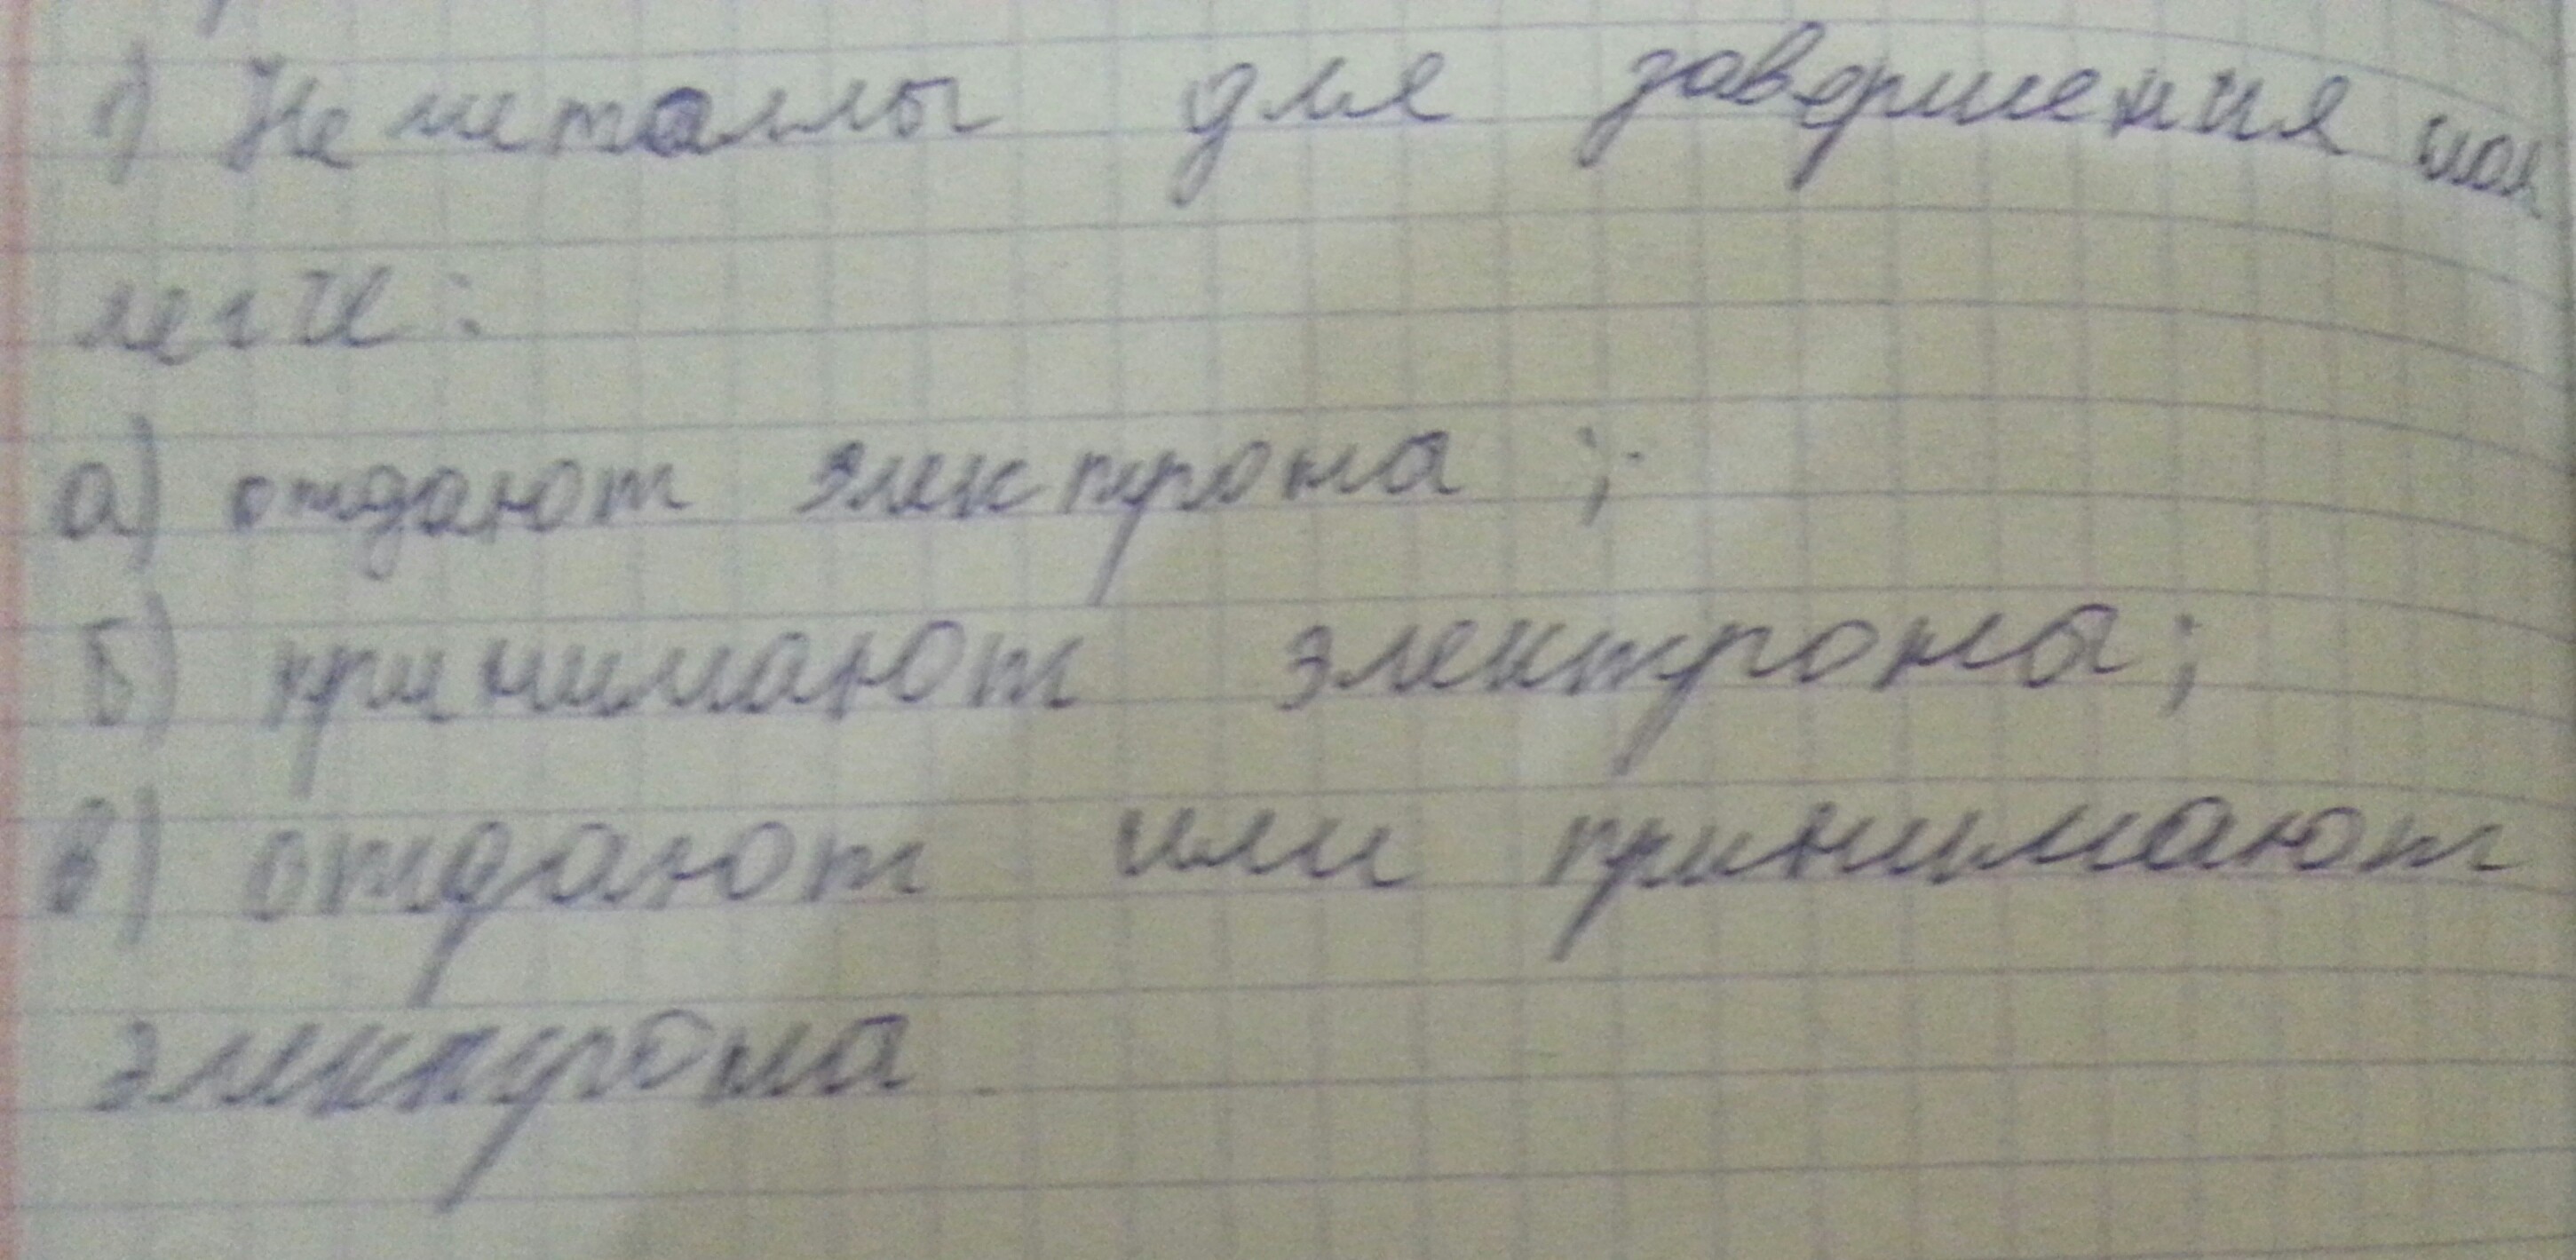 1) Неметаллы для завершения мол
легче:
а) отдают электрона;
б) принимают электрона;
в) отдают или принимают
электрона